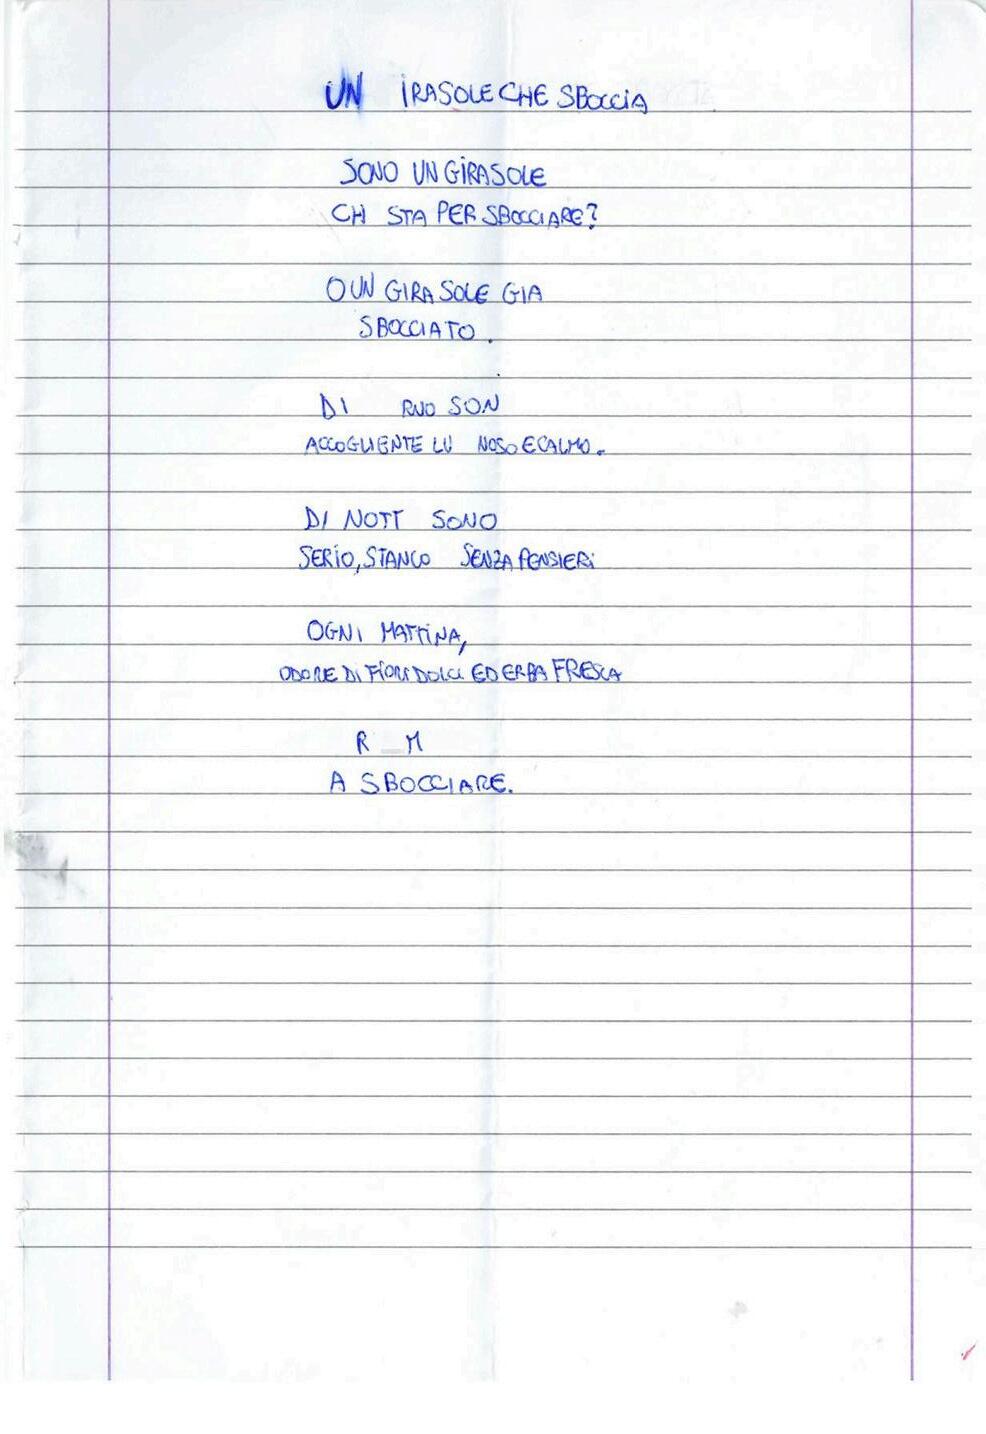 UN IRASOLE CHE SBOCCIA
SONO UN GIRASOLE
CH STA PER SBOCCIARE?
O UN GIRASOLE GIA
SBOCCIATO.
DI RNO SON
ACCOGLIENTE LU NOSO E CALMO.
DI NOTT SONO
SERIO, STANCO SENZA PENSIERI
OGNI MATTINA,
ODORE DI FIORI DOLCI ED ERBA FRESCA
R M
A SBOCCIARE.